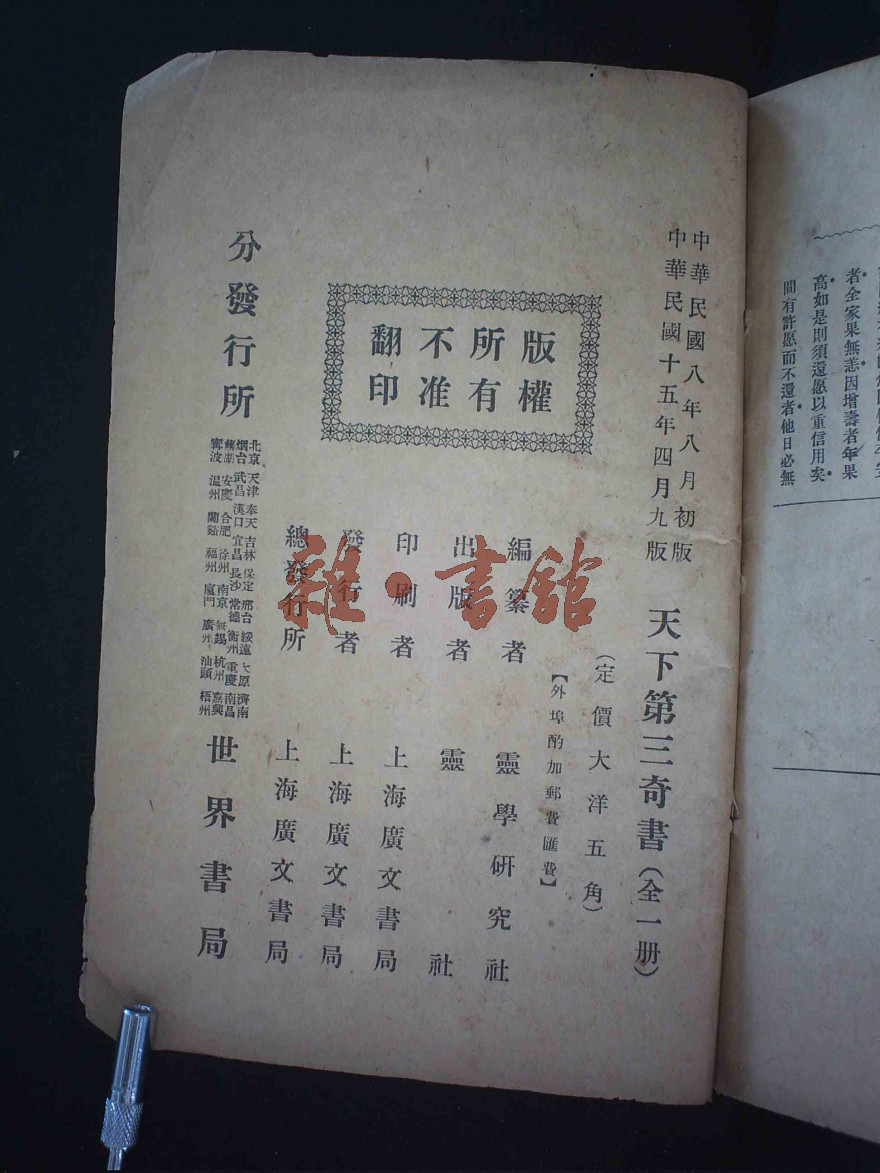 中華民國八年八月初版
中華民國十五年四月九版
天下第三奇書(全一册)
(定價大洋五角)
【外埠酌加郵費匯費】
版權
所有
不准
翻印
編纂者 靈學研究社
出版者 靈社
印刷者 上海廣文書局
發行者 上海廣文書局
總發行所 上海廣文書局
分發行所
北京 天津 奉天 吉林 保定 邢台 綏遠 太原 濟南
烟台 武昌 漢口 宜昌 長沙 常德 衡州 重慶 南昌
蕪湖 安慶 合肥 徐州 南京 無錫 杭州 嘉興
寧波 温州 蘭谿 福州 廈門 廣州 汕頭 梧州
世界書局
雜·書館
者全家果無恙因增壽者年果
高如是則須還愿以重信用矣
間有許愿而不還者他日必無